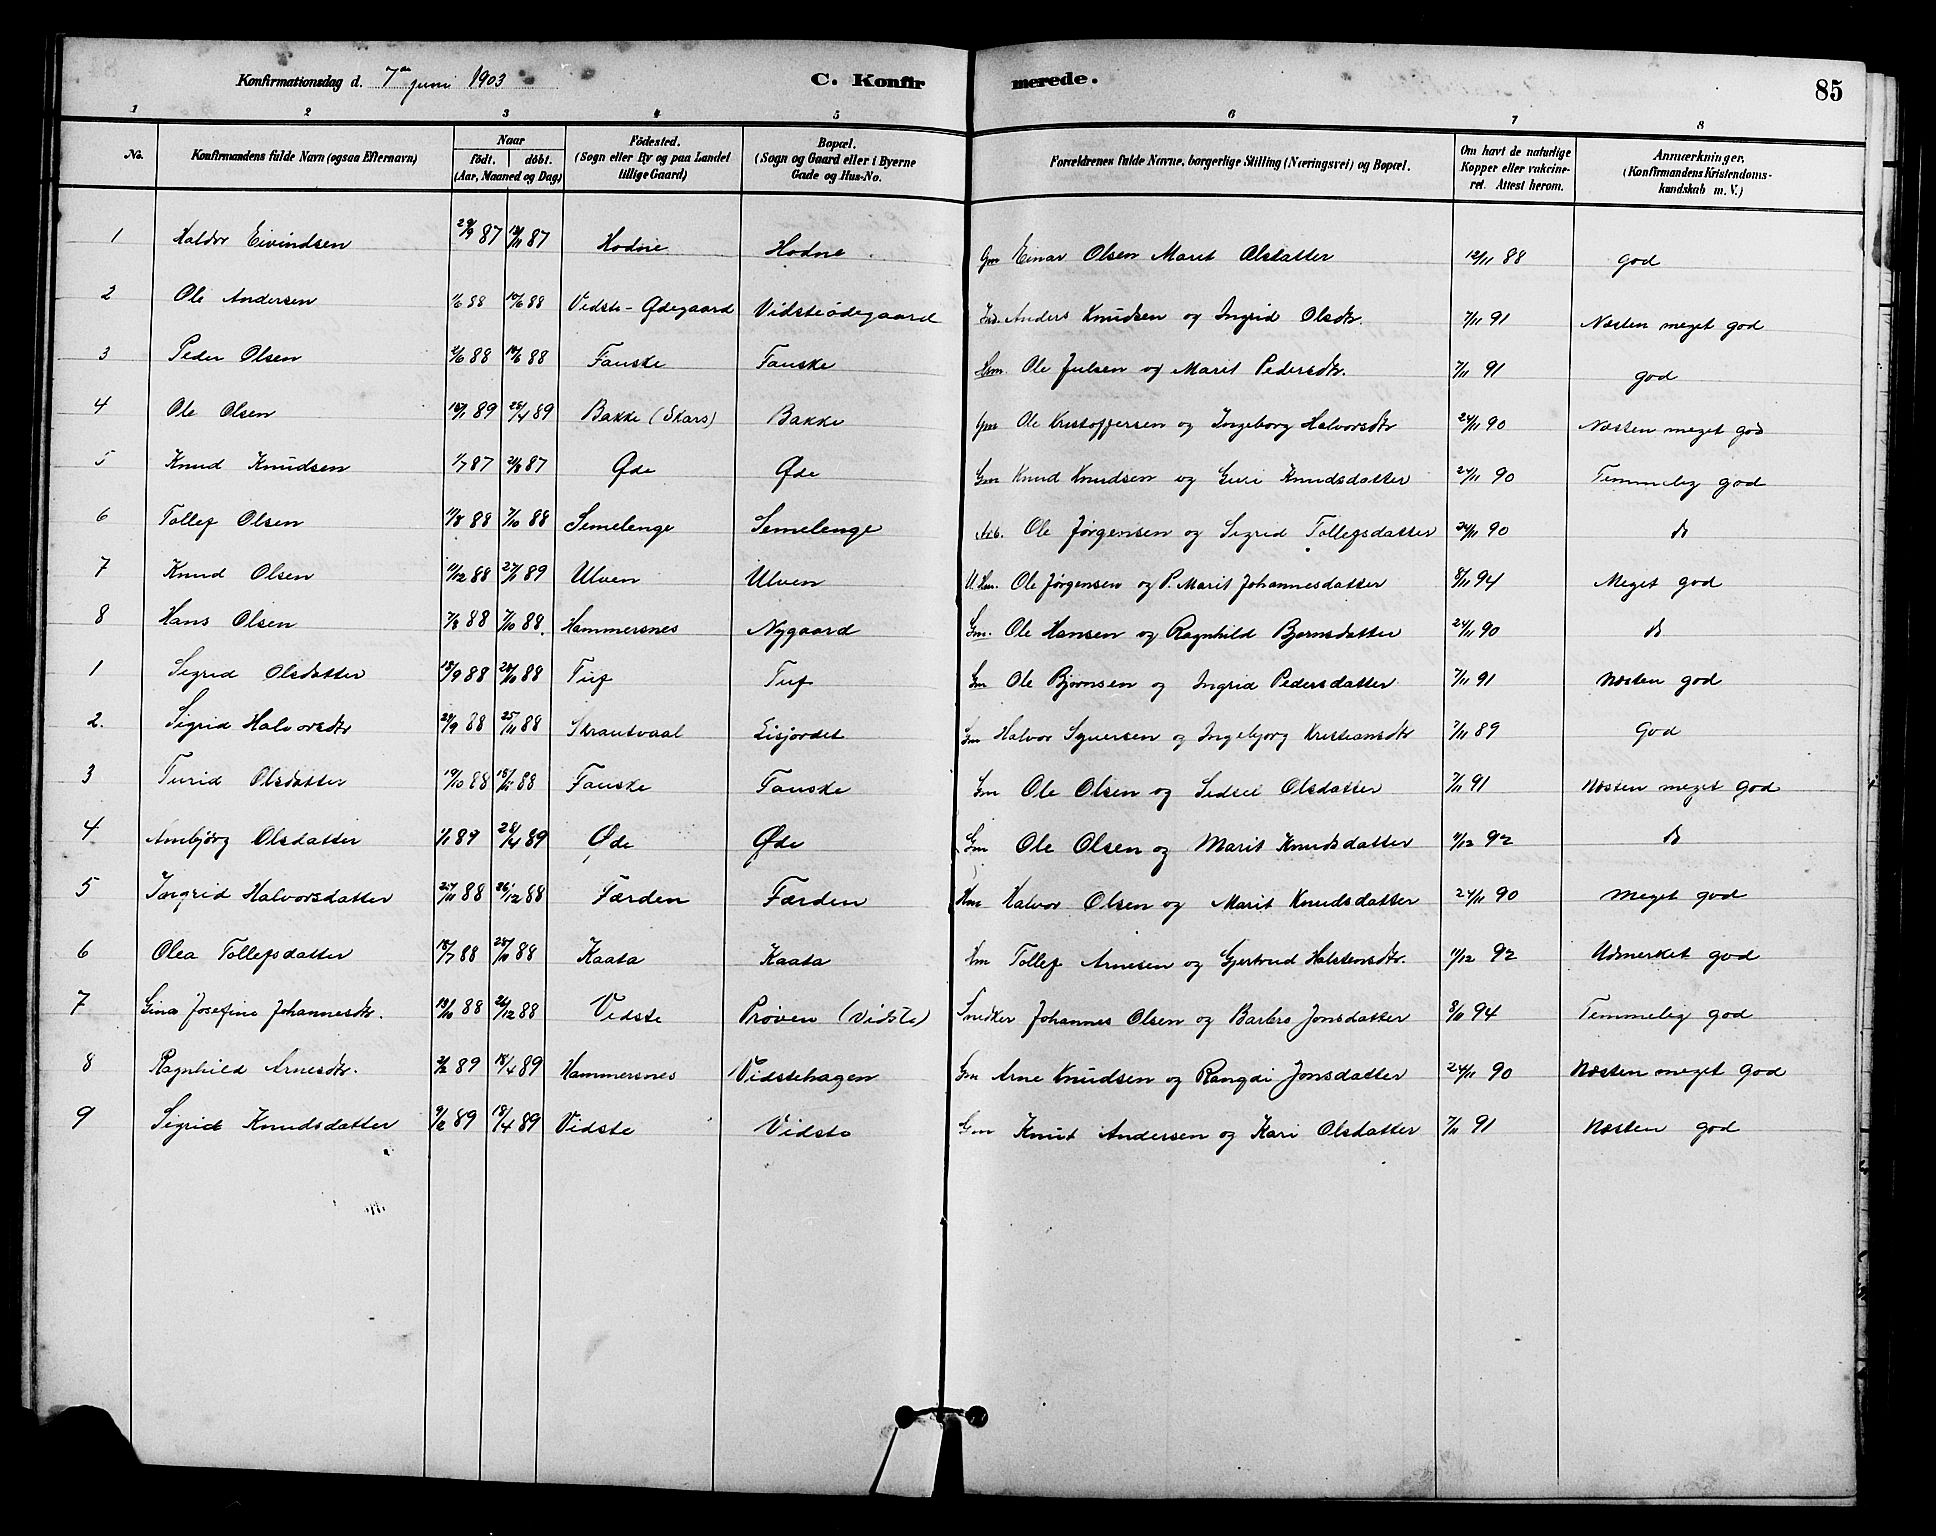 Konfirmationsdag d. 7de juni 1903 C. Konfirmerede. 85
1 2 3 4 5 6 7 8
No. Konfirmandens fulde Navn (ogsaa Efternavn) Naar födt. döbt. (Aar, Maaned og Dag) Födested. (Sogn eller By og paa Landet tillige Gaard) Bopæl. (Sogn og Gaard eller i Byerne Gade og Hus-No. Forældrenes fulde Navne, borgerlige Stilling (Næringsvei) og Bopæl. Om havt de naturlige Kopper eller vakcineret. Attest herom. Anmærkninger. (Konfirmandens Kristendomskundskab m. V.)
1 Haldor Eivindsen 87 87 Hodne Hodne Gm Einar Olsen Marit Olsdatter 12/11 88 god
2 Ole Andersen 1/6 88 10/6 88 Vidste-Ødegaard Vidsteødegaard Anders Knudsen og Ingrid Olsdtr. 7/11 91 Næsten meget god
3 Peder Olsen 2/6 88 10/6 88 Fauske Fauske Hm. Ole Julsen og Marit Pedersdtr. 7/11 91 god
4 Ole Olsen 89 28/4 89 Bakke (Skars) Bakke Gm Ole Kristoffersen og Ingeborg Halvorsdtr 24/11 90 Næsten meget god
5 Knud Knudsen 1/7 87 87 Øde Øde Gm Knud Knudsen og Guri Knudsdatter 24/11 90 Temmelig god
6 Tollef Olsen 11/8 88 7/10 88 Semelenge Semelenge Arb. Ole Jørgensen og Sigrid Tollefsdatter 24/11 90 do
7 Knud Olsen 11/12 88 27/1 89 Ulven Ulven Ole Jørgensen og P. Marit Johannesdatter 8/11 94 Meget god
8 Hans Olsen 7/8 88 7/10 88. Hammersnes Nygaard Gm. Ole Hansen og Ragnhild Bjørnsdatter 24/11 90 do
1 Sigrid Olsdatter 18/9 88 28/10 88 Tuf Tuf Gm Ole Bjørnsen og Ingrid Pedersdatter 7/11 91 Næsten god
2. Sigrid Halvorsdtr 29/9 88 25/11 88 Skrautvaal Lisjordet Gm Halvor Syversen og Ingebjørg Kristiansdtr 7/11 89 God
3 Turid Olsdatter 19/10 88 18/11 88 Fauske Fauske Gm Ole Olsen og Sidsel Olsdatter 7/11 91 Næsten meget god
4 Arnebjörg Olsdatter 1/1 89 28/4 89 Øde Øde Gm Ole Olsen og Marit Knudsdatter 11/12 92 do
5 Ingrid Halvorsdatter 25/11 88 26/12 88 Færden Færden Hm Halvor Olsen og Marit Knudsdatter 24/11 90 Meget god
6 Olea Tollefsdatter 18/7 88 28/10 88 Kaata Kaata Hm Tollef Arnesen og Gjertrud Halstensdtr. 11/12 92 Udmerket god
7 Gina Josefine Johannesdtr. 13/10 88 26/12 88 Vidste Prøven (Vidste) Snedker Johannes Olsen og Barbro Jonsdatter 8/11 94 Temmelig god
8 Ragnhild Arnesdtr. 2/2 89 18/4 89 Hammersnes Vidstehagen Gm Arne Knudsen og Rangdi Jonsdatter 24/11 90 Næsten meget god
9 Sigrid Knudsdatter 9/2 89 18/4 89 Vidste Vidste Gm Knut Andersen og Kari Olsdatter 7/11 91 Næsten god